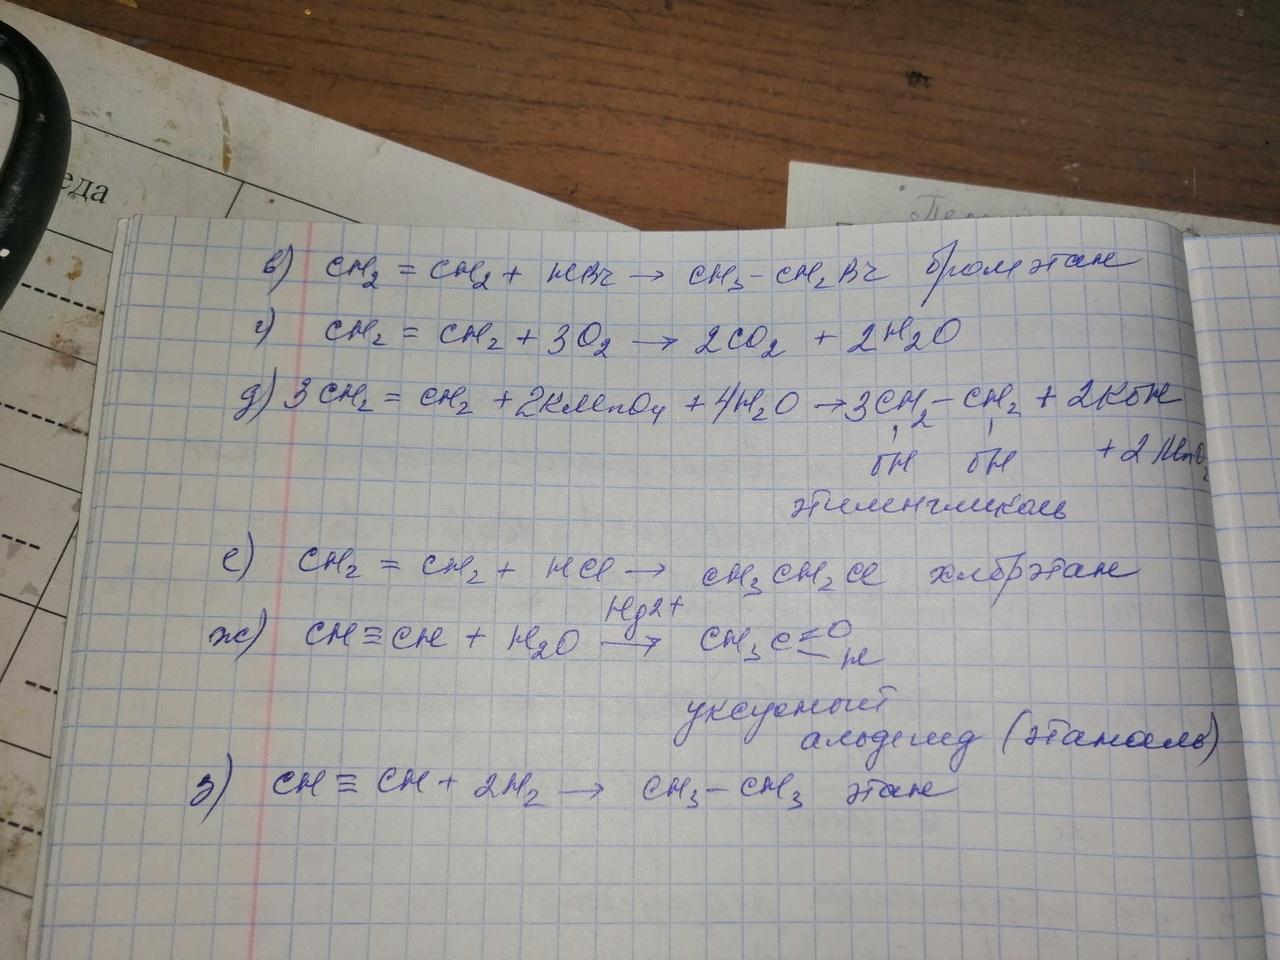 еда
в) CH₂ = CH₂ + HBr → CH₃ – CH₂Br бромэтан
г) CH₂ = CH₂ + 3O₂ → 2CO₂ + 2H₂O
д) 3CH₂ = CH₂ + 2KMnO₄ + 4H₂O → 3CH₂ – CH₂ + 2KOH
OH OH + 2MnO₂
этиленгликоль
е) CH₂ = CH₂ + HCl → CH₃CH₂Cl хлорэтан
Hg2+
ж) CH ≡ CH + H₂O → CH₃C=O
H
уксусный
альдегид (этаналь)
з) CH ≡ CH + 2H₂ → CH₃ – CH₃ этан